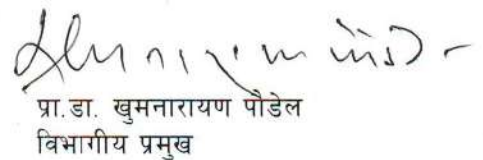 प्रा.डा. खुमनारायण पौडेल
विभागीय प्रमुख